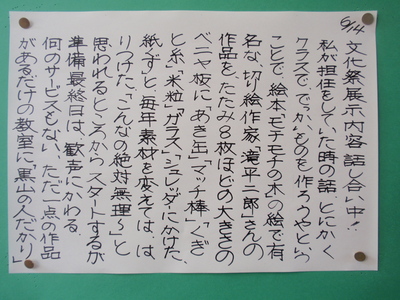 6/14
文化祭展示内容 話し合い中!
私が担任をしていた時の話。とにかく
クラスで、でっかいものを作ろうやという
ことで、絵本「モチモチの木」の絵で有
名な、切り絵作家「滝平二郎」さんの
作品を、たたみ8枚ほどの大きさの
ベニヤ板に「あき缶」「マッチ棒」「くぎ
と糸」「米粒」「ガラス」「シュレッダにかけた
紙くず」と、毎年素材を変えては、は
りつけた。「こんなの絶対無理〜」と
思われるところからスタートするが
準備最終日は、歓声にかわる。
何のサービスもない、ただ一点の作品
があるだけの教室に「黒山の人だかり」